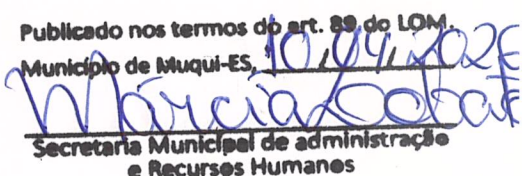 Publicado nos termos do art. 89 do LOM.
Município de Muqui-ES, 10/04/202
Márcia
Secretaria Municipal de administração
e Recursos Humanos